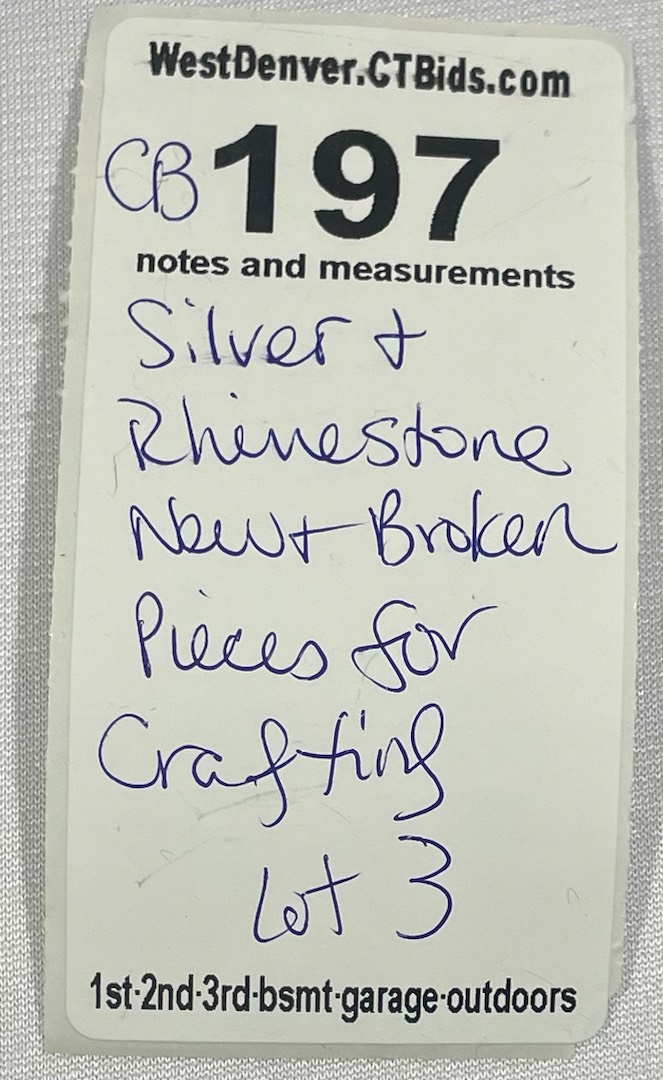 WestDenver.CTBids.com
CB 197
notes and measurements
Silver +
Rhinestone
New + Broken
Pieces for
Crafting
Lot 3
1st·2nd·3rd·bsmt·garage·outdoors